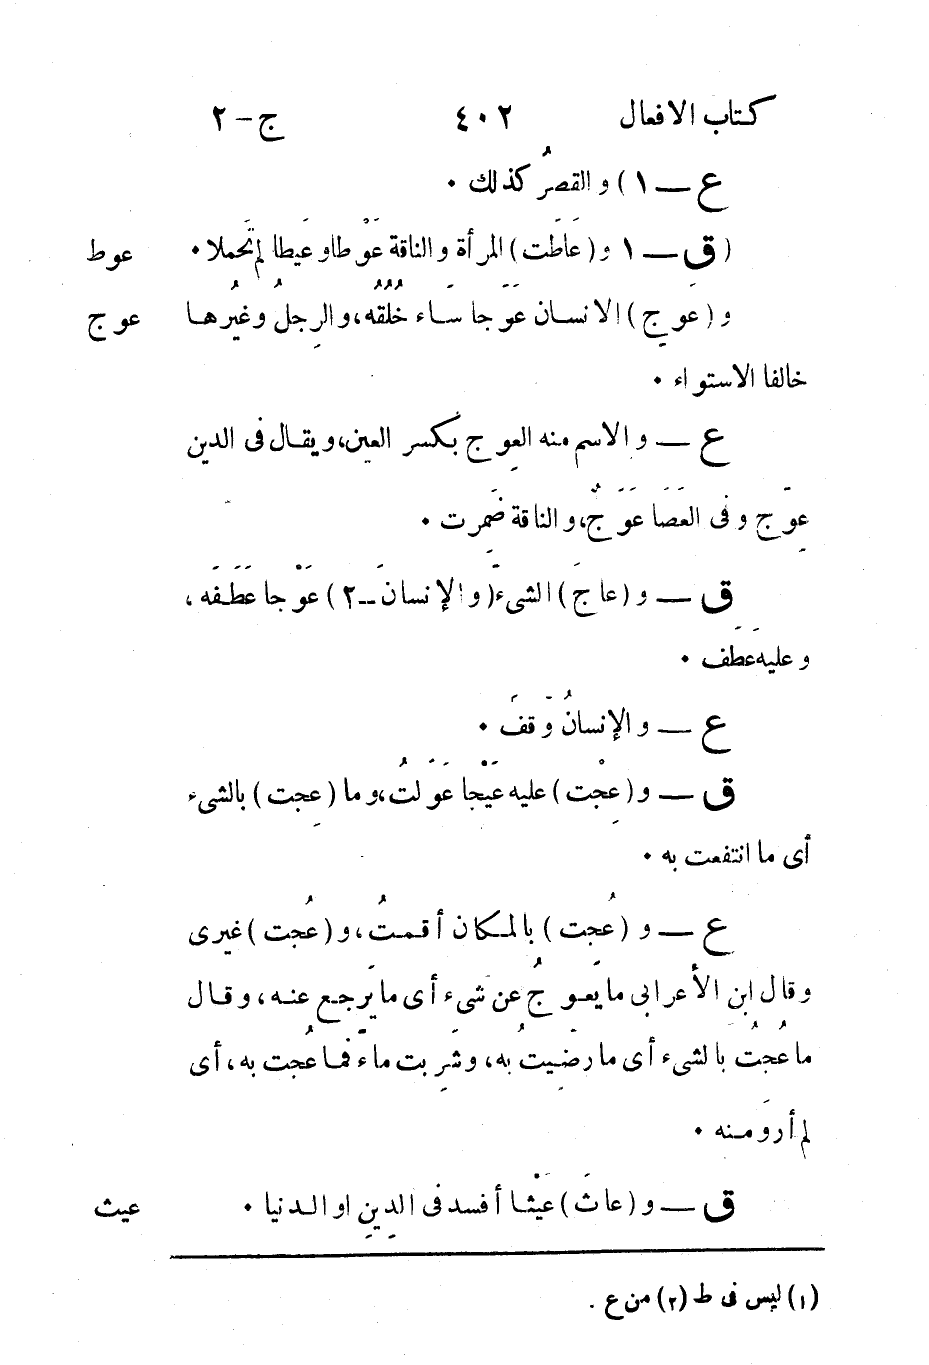 كتاب الافعال ٤٠٢ ج-٢
ع — ١) و القصرُ كذلك ٠
( ق — ١ و (عَاطَت) المرأة و الناقة عَوْطا و عَيطا لم تَحملا ٠ عوط
و (عَوِج) الانسان عَوَجا سَاء خُلُقُه، و الرِجلُ وغيرُها عوج
خالفا الاستواء ٠
ع — و الاسم منه العِوج بكسر العين، و يقال فى الدين
عِوَج و فى العَصَا عَوَجٌ، و الناقة ضَمِرت ٠
ق — و (عاجَ) الشىءَ (و الإنسانَ — ٢) عَوْجا عَطَفَه،
و عليه عَطَف ٠
ع — و الإنسانُ وَقفَ ٠
ق — و (عِجْت) عليه عَيْجا عَوَّلتُ، و ما (عِجت) بالشىء
أى ما انتفعت به ٠
ع — و (عُجت) بالمكان أقمتُ، و (عُجت) غيرى
و قال ابن الأعرابى ما يَعوجُ عن شىء أى ما يَرجع عنه، و قال
ما عُجتُ بالشىء أى ما رضِيتُ به، و شَرِبت ماءً فما عُجت به، أى
لم أروَ منه ٠
ق — و (عاثَ) عَيْثا أفسد فى الدِينِ او الدنيا ٠ عيث
(١) ليس فى ط (٢) من ع .